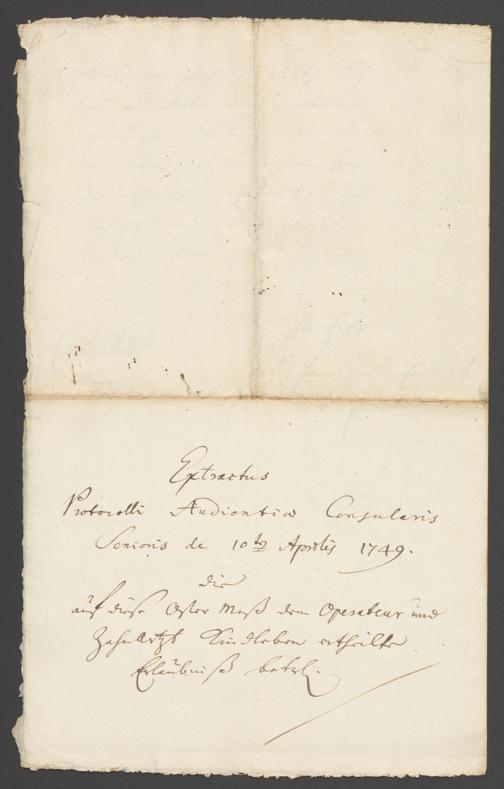 Extractus
Protocolli Audientiæ Consularis
Senioris de 10ten Aprilis 1749.
die
auf diese Oster Meß dem Operateur und
Zahnartzt Kindleben ertheilte
Erlaubniß betrl.